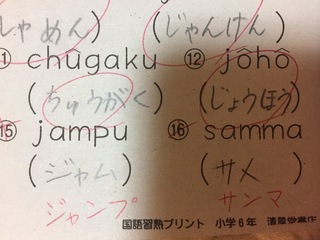 しゃめん) (じゃんけん)
① chūgaku ⑫ jôhô
(ちゅうがく) (じょうほう)
⑮ jampu ⑯ samma
(ジャム) (サメ)
ジャンプ サンマ
国語習熟プリント 小学6年 清風堂書店